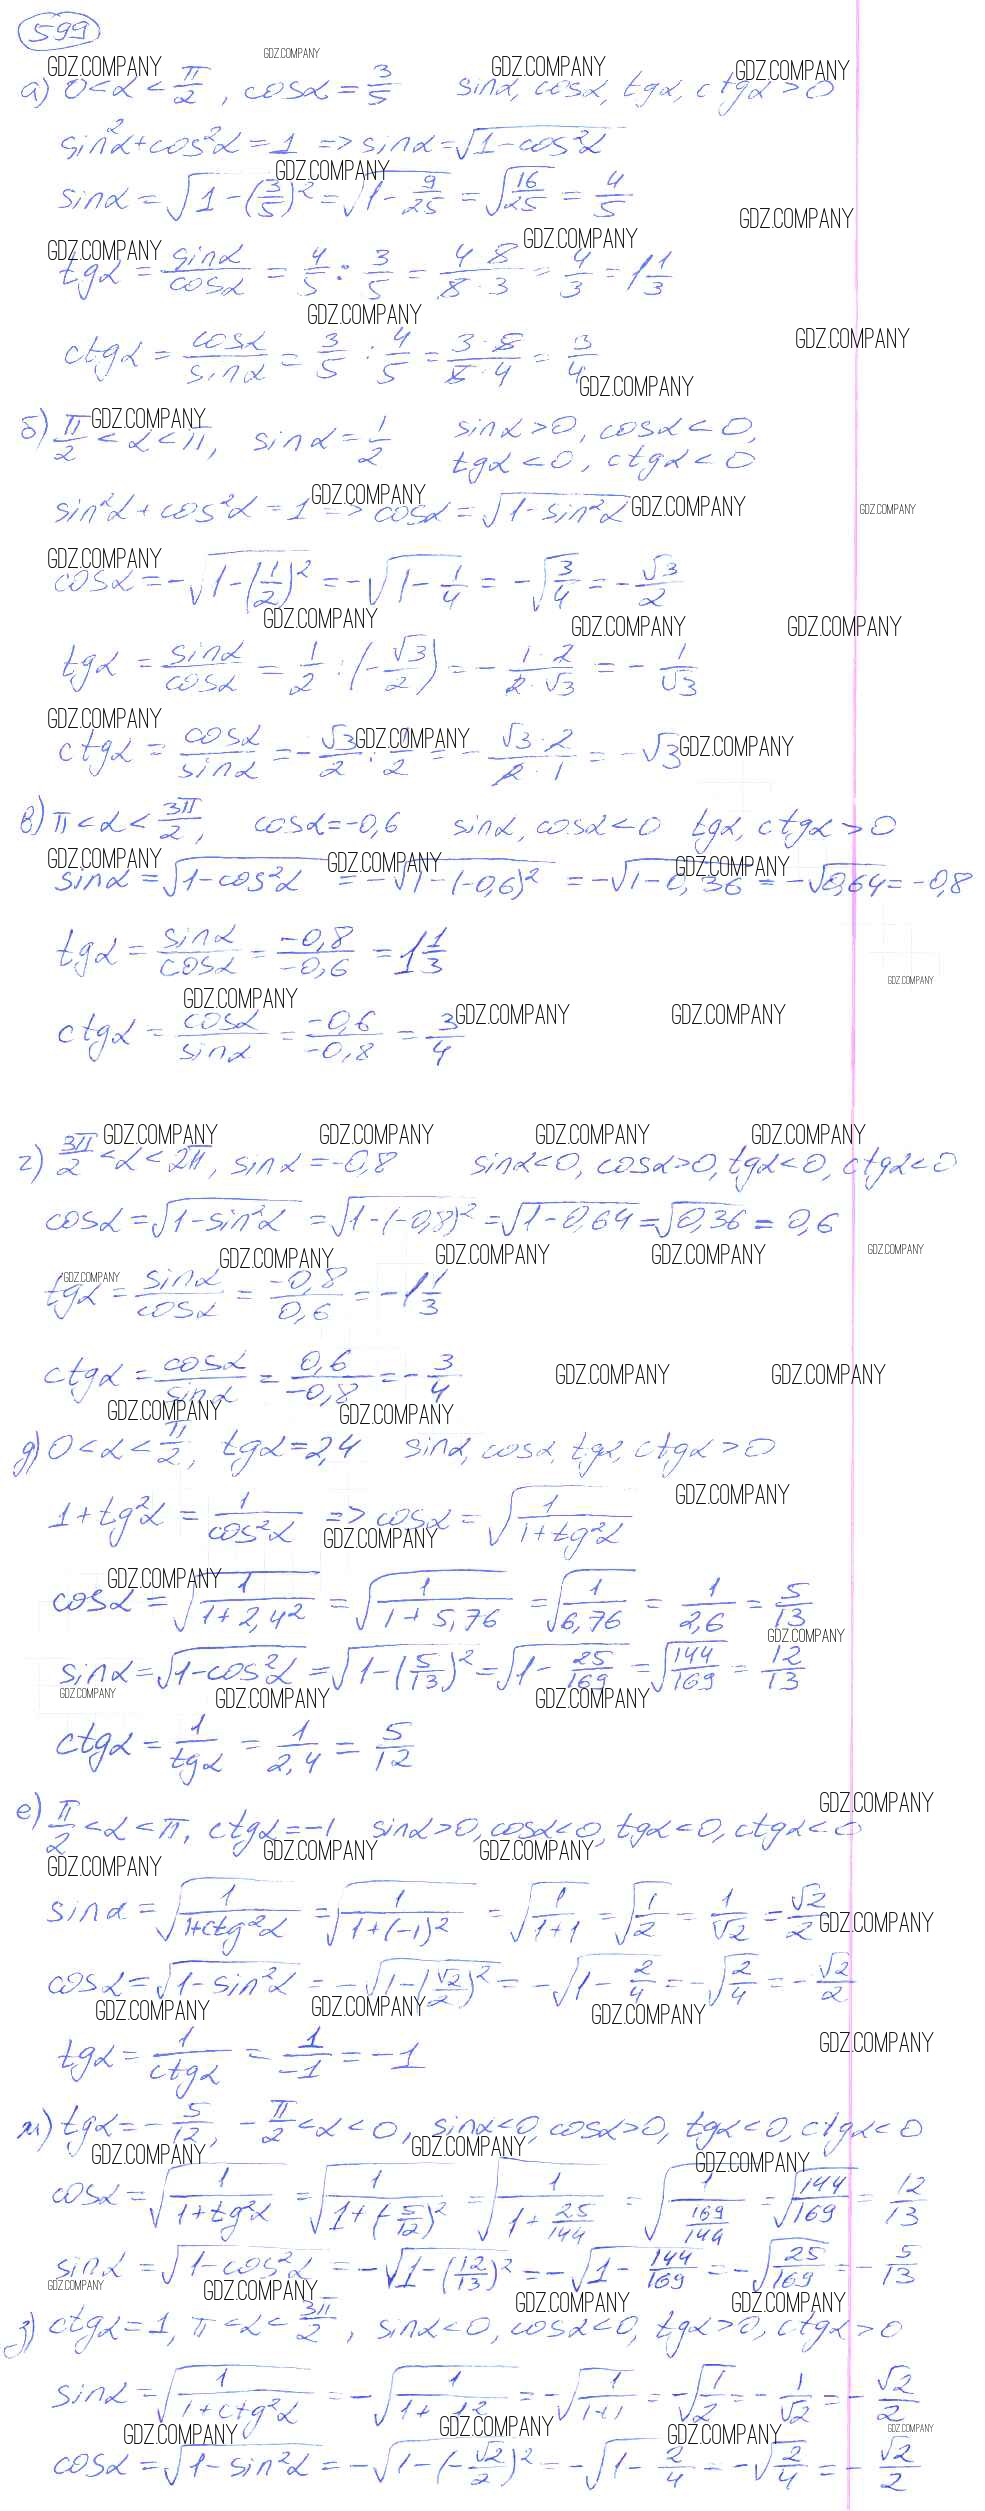 599
GDZ.COMPANY
а) 0 < α < π/2, cosα = 3/5    sinα, cosα, tgα, ctgα > 0
sin²α + cos²α = 1 => sinα = √(1 - cos²α)
sinα = √(1 - (3/5)²) = √(1 - 9/25) = √(16/25) = 4/5
tgα = sinα/cosα = 4/5 : 3/5 = (4·5)/(5·3) = 4/3 = 1 1/3
ctgα = cosα/sinα = 3/5 : 4/5 = (3·5)/(5·4) = 3/4
б) π/2 < α < π, sinα = 1/2    sinα > 0, cosα < 0,
tgα < 0, ctgα < 0
sin²α + cos²α = 1 => cosα = √(1 - sin²α)
cosα = -√(1 - (1/2)²) = -√(1 - 1/4) = -√(3/4) = -√3/2
tgα = sinα/cosα = 1/2 : (-√3/2) = -(1·2)/(2·√3) = -1/√3
ctgα = cosα/sinα = -√3/2 : 1/2 = -(√3·2)/(2·1) = -√3
в) π < α < 3π/2, cosα = -0,6    sinα, cosα < 0    tgα, ctgα > 0
sinα = √(1 - cos²α) = -√(1 - (-0,6)²) = -√(1 - 0,36) = -√0,64 = -0,8
tgα = sinα/cosα = -0,8/-0,6 = 1 1/3
ctgα = cosα/sinα = -0,6/-0,8 = 3/4
г) 3π/2 < α < 2π, sinα = -0,8    sinα < 0, cosα > 0, tgα < 0, ctgα < 0
cosα = √(1 - sin²α) = √(1 - (-0,8)²) = √(1 - 0,64) = √0,36 = 0,6
tgα = sinα/cosα = -0,8/0,6 = -1 1/3
ctgα = cosα/sinα = 0,6/-0,8 = -3/4
д) 0 < α < π/2, tgα = 2,4    sinα, cosα, tgα, ctgα > 0
1 + tg²α = 1/cos²α => cosα = √(1/(1 + tg²α))
cosα = √(1/(1 + 2,4²)) = √(1/(1 + 5,76)) = √(1/6,76) = 1/2,6 = 5/13
sinα = √(1 - cos²α) = √(1 - (5/13)²) = √(1 - 25/169) = √(144/169) = 12/13
ctgα = 1/tgα = 1/2,4 = 5/12
е) π/2 < α < π, ctgα = -1    sinα > 0, cosα < 0, tgα < 0, ctgα < 0
sinα = √(1/(1 + ctg²α)) = √(1/(1 + (-1)²)) = √(1/(1 + 1)) = √(1/2) = 1/√2 = √2/2
cosα = √(1 - sin²α) = -√(1 - (√2/2)²) = -√(1 - 2/4) = -√(2/4) = -√2/2
tgα = 1/ctgα = 1/-1 = -1
ж) tgα = -5/12, -π/2 < α < 0, sinα < 0, cosα > 0, tgα < 0, ctgα < 0
cosα = √(1/(1 + tg²α)) = √(1/(1 + (-5/12)²)) = √(1/(1 + 25/144)) = √(1/(169/144)) = √(144/169) = 12/13
sinα = √(1 - cos²α) = -√(1 - (12/13)²) = -√(1 - 144/169) = -√(25/169) = -5/13
з) ctgα = 1, π < α < 3π/2, sinα < 0, cosα < 0, tgα > 0, ctgα > 0
sinα = √(1/(1 + ctg²α)) = -√(1/(1 + 1²)) = -√(1/(1+1)) = -√(1/2) = -1/√2 = -√2/2
cosα = √(1 - sin²α) = -√(1 - (-√2/2)²) = -√(1 - 2/4) = -√(2/4) = -√2/2